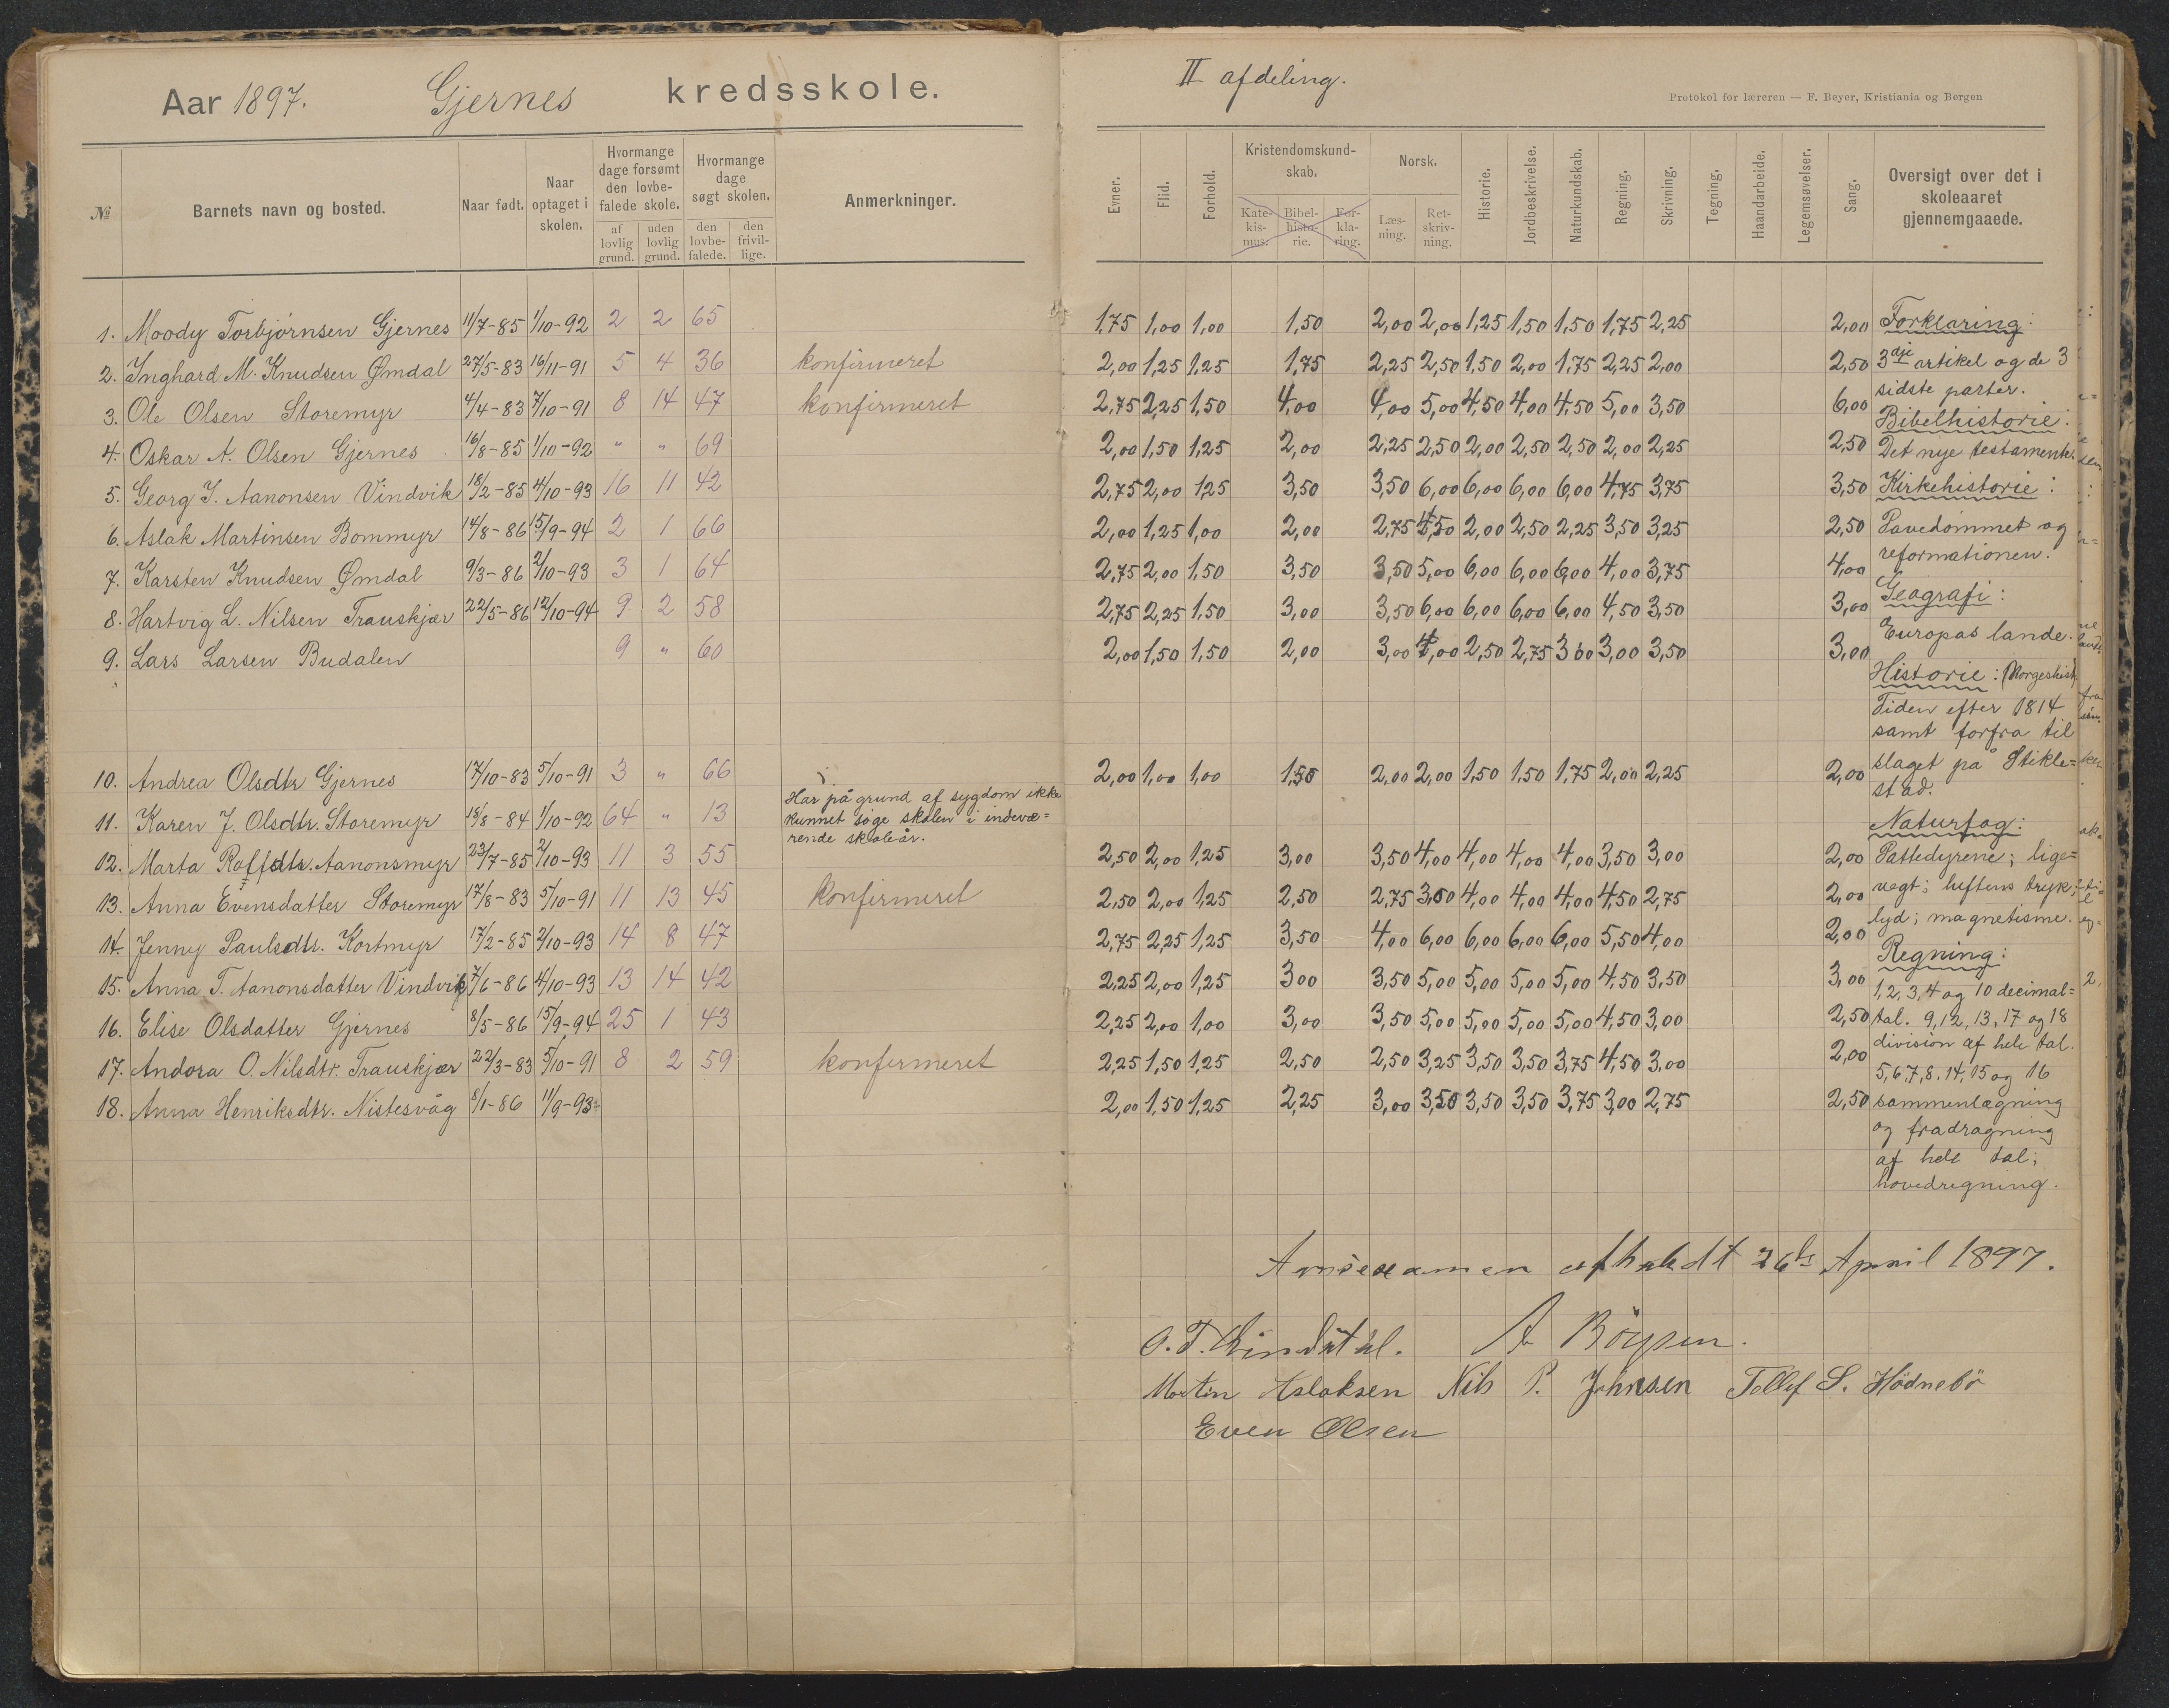 Aar 1897. Gjernes kredsskole.
№ Barnets navn og bosted. Naar født. Naar optaget i skolen. Hvormange dage forsømt den lovbefalede skole. af lovlig grund. uden lovlig grund. Hvormange dage søgt skolen. den lovbefalede. den frivillige. Anmerkninger.
1. Moody Torbjørnsen Gjernes 11/7-85 1/10-92 2 2 65
2. Inghard M. Knudsen Ømdal 27/5-83 16/11-91 5 4 36 konfirmeret
3. Ole Olsen Storemyr 4/4-83 7/10-91 8 14 47 konfirmeret
4. Oskar A. Olsen Gjernes 16/8-85 1/10-92 " " 69
5. Georg J. Aanonsen Vindvik 18/2-85 4/10-93 16 11 42
6. Aslak Martinsen Bommyr 14/8-86 15/9-94 2 1 66
7. Karsten Knudsen Ømdal 9/3-86 2/10-93 3 1 64
8. Hartvig L. Nilsen Trauskjær 22/5-86 12/10-94 9 2 58
9. Lars Larsen Budalen 9 " 60
10. Andrea Olsdtr Gjernes 17/10-83 5/10-91 3 " 66
11. Karen J. Olsdtr. Storemyr 18/8-84 1/10-92 64 " 13 Har på grund af sygdom ikke
kunnet søge skolen i indevæ=
rende skoleår.
12. Marta Roffdtr. Aanonsmyr 23/7-85 2/10-93 11 3 55
13. Anna Evensdatter Storemyr 17/8-83 5/10-91 11 13 45 konfirmeret
14. Jenny Paulsdtr. Kortmyr 17/2-85 2/10-93 14 8 47
15. Anna T. Aanonsdatter Vindvik 7/6-86 4/10-93 13 14 42
16. Elise Olsdatter Gjernes 8/5-86 15/9-94 25 1 43
17. Andora O. Nilsdtr. Trauskjær 22/3-83 5/10-91 8 2 59 konfirmeret
18. Anna Henriksdtr. Nistesvåg 8/1-86 11/9-93
II afdeling.
Protokol for læreren — F. Beyer, Kristiania og Bergen
Evner. Flid. Forhold. Kristendomskundskab. Katekismus. Bibelhistorie. Forklaring. Norsk. Læsning. Retskrivning. Historie. Jordbeskrivelse. Naturkundskab. Regning. Skrivning. Tegning. Haandarbeide. Legemsøvelser. Sang. Oversigt over det i skoleaaret gjennemgaaede.
1,75 1,00 1,00 1,50 2,00 2,00 1,25 1,50 1,50 1,75 2,25 2,00
2,00 1,25 1,25 1,75 2,25 2,50 1,50 2,00 1,75 2,25 2,00 2,50
2,75 2,25 1,50 4,00 4,00 5,00 4,50 4,00 4,50 5,00 3,50 6,00
2,00 1,50 1,25 2,00 2,25 2,50 2,00 2,50 2,50 2,00 2,25 2,50
2,75 2,00 1,25 3,50 3,50 6,00 6,00 6,00 6,00 4,75 3,75 3,50
2,00 1,25 1,00 2,00 2,75 4,50 2,00 2,50 2,25 3,50 3,25 2,50
2,75 2,00 1,50 3,50 3,50 5,00 6,00 6,00 6,00 4,00 3,75 4,00
2,75 2,25 1,50 3,00 3,50 6,00 6,00 6,00 6,00 4,50 3,50 3,00
2,00 1,50 1,50 2,00 3,00 4,00 2,50 2,75 3,00 3,00 3,50 3,00
2,00 1,00 1,00 1,50 2,00 2,00 1,50 1,50 1,75 2,00 2,25 2,00
2,50 2,00 1,25 3,00 3,50 4,00 4,00 4,00 4,00 3,50 3,00 2,00
2,50 2,00 1,25 2,50 2,75 3,50 4,00 4,00 4,00 4,50 2,75 2,00
2,75 2,25 1,25 3,50 4,00 6,00 6,00 6,00 6,00 5,50 4,00 2,00
2,25 2,00 1,25 3,00 3,50 5,00 5,00 5,00 5,00 4,50 3,50 3,00
2,25 2,00 1,00 3,00 3,50 5,00 5,00 5,00 5,00 4,50 3,00 2,50
2,25 1,50 1,25 2,50 2,50 3,25 3,50 3,50 3,75 4,50 3,00 2,00
2,00 1,50 1,25 2,25 3,00 3,50 3,50 3,50 3,75 3,00 2,75 2,50
Forklaring:
3dje artikel og de 3
sidste parter.
Bibelhistorie:
Det nye testamente.
Kirkehistorie:
Pavedømmet og
reformationen.
Geografi:
Europas lande.
Historie: (Norgeshist)
Tiden efter 1814
samt forfra til
slaget på Stikle=
stad.
Naturfag:
Pattedyrene; lige=
vægt; luftens tryk;
lyd; magnetisme.
Regning:
1, 2, 3, 4 og 10 decimal=
tal. 9, 12, 13, 17 og 18
division af hele tal.
5, 6, 7, 8, 14, 15 og 16
sammenlægning
og fradragning
af hele tal;
hovedregning.
Årsexamen afholdt 26de April 1897.
O. T. A Börgsen.
Martin Aslaksen Nils P. Johnsen Tellef S. Hödnebö
Even Olsen